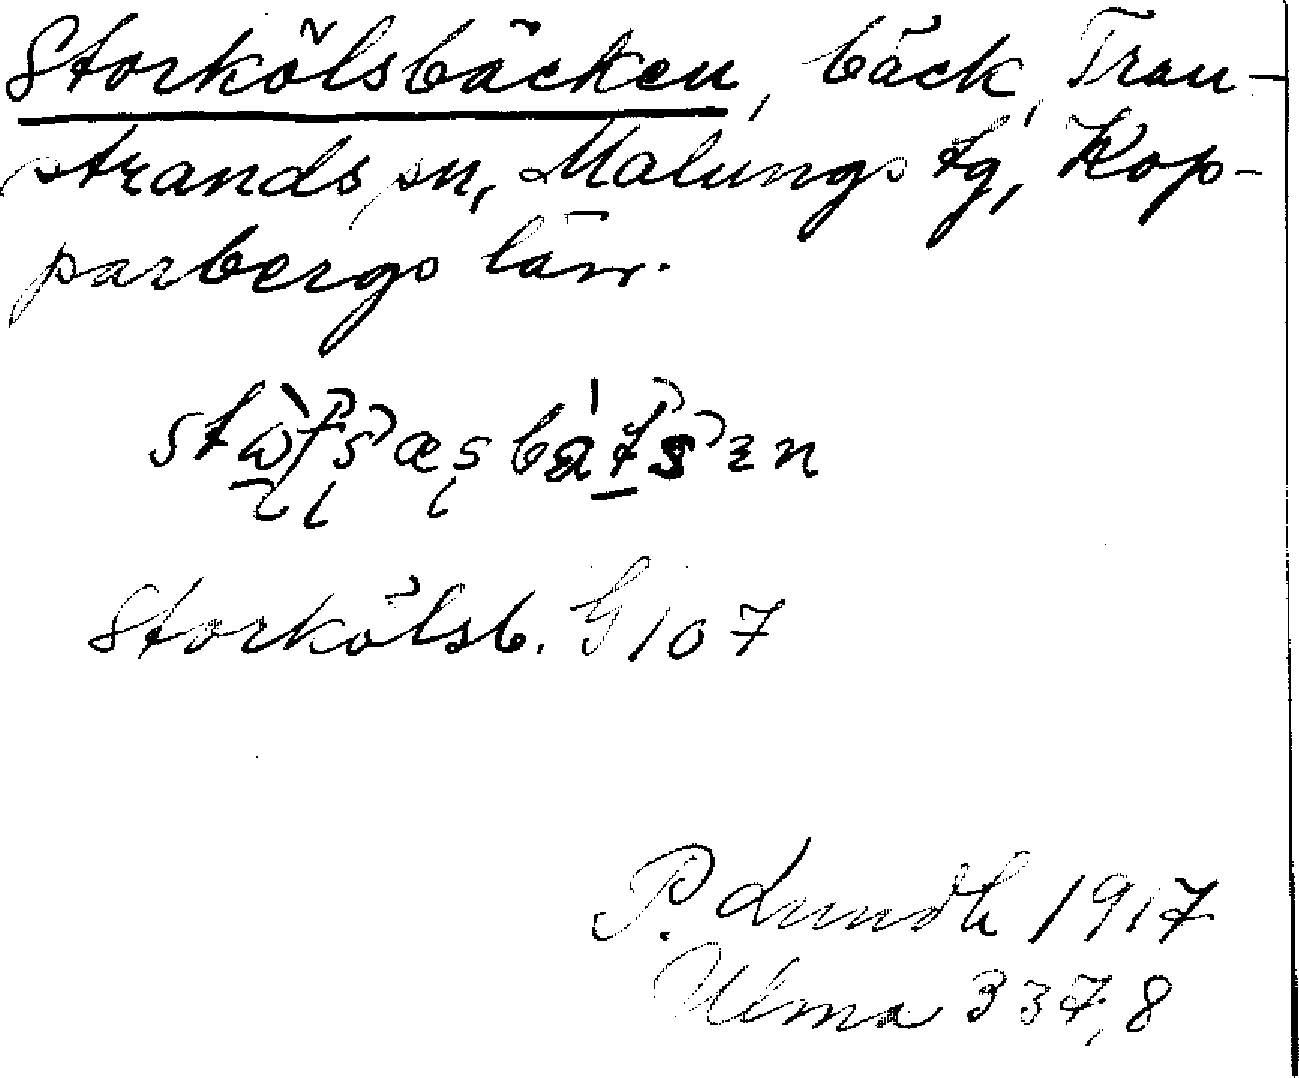 Storkölsbäcken, bäck, Tran-
strands sn, Malungs tg, Kop-
parbergs län.
Storkölsb. G 107
P. Lundh 1917
Ulma 337,8